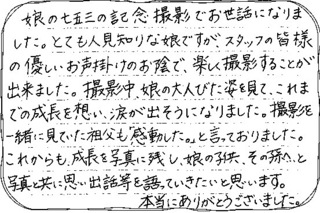 娘の七五三の記念撮影でお世話になりま
した。とても人見知りな娘ですが、スタッフの皆様
の優しいお声掛けのお陰で、楽しく撮影することが
出来ました。撮影中、娘の大人びた姿を見て、これま
での成長を想い、涙が出そうになりました。撮影を
一緒に見ていた祖父も「感動した。」と言っておりました。
これからも、成長を写真に残し、娘の子供、その孫へ、と
写真と共に思い出話等を語っていきたいと思います。
本当にありがとうございました。